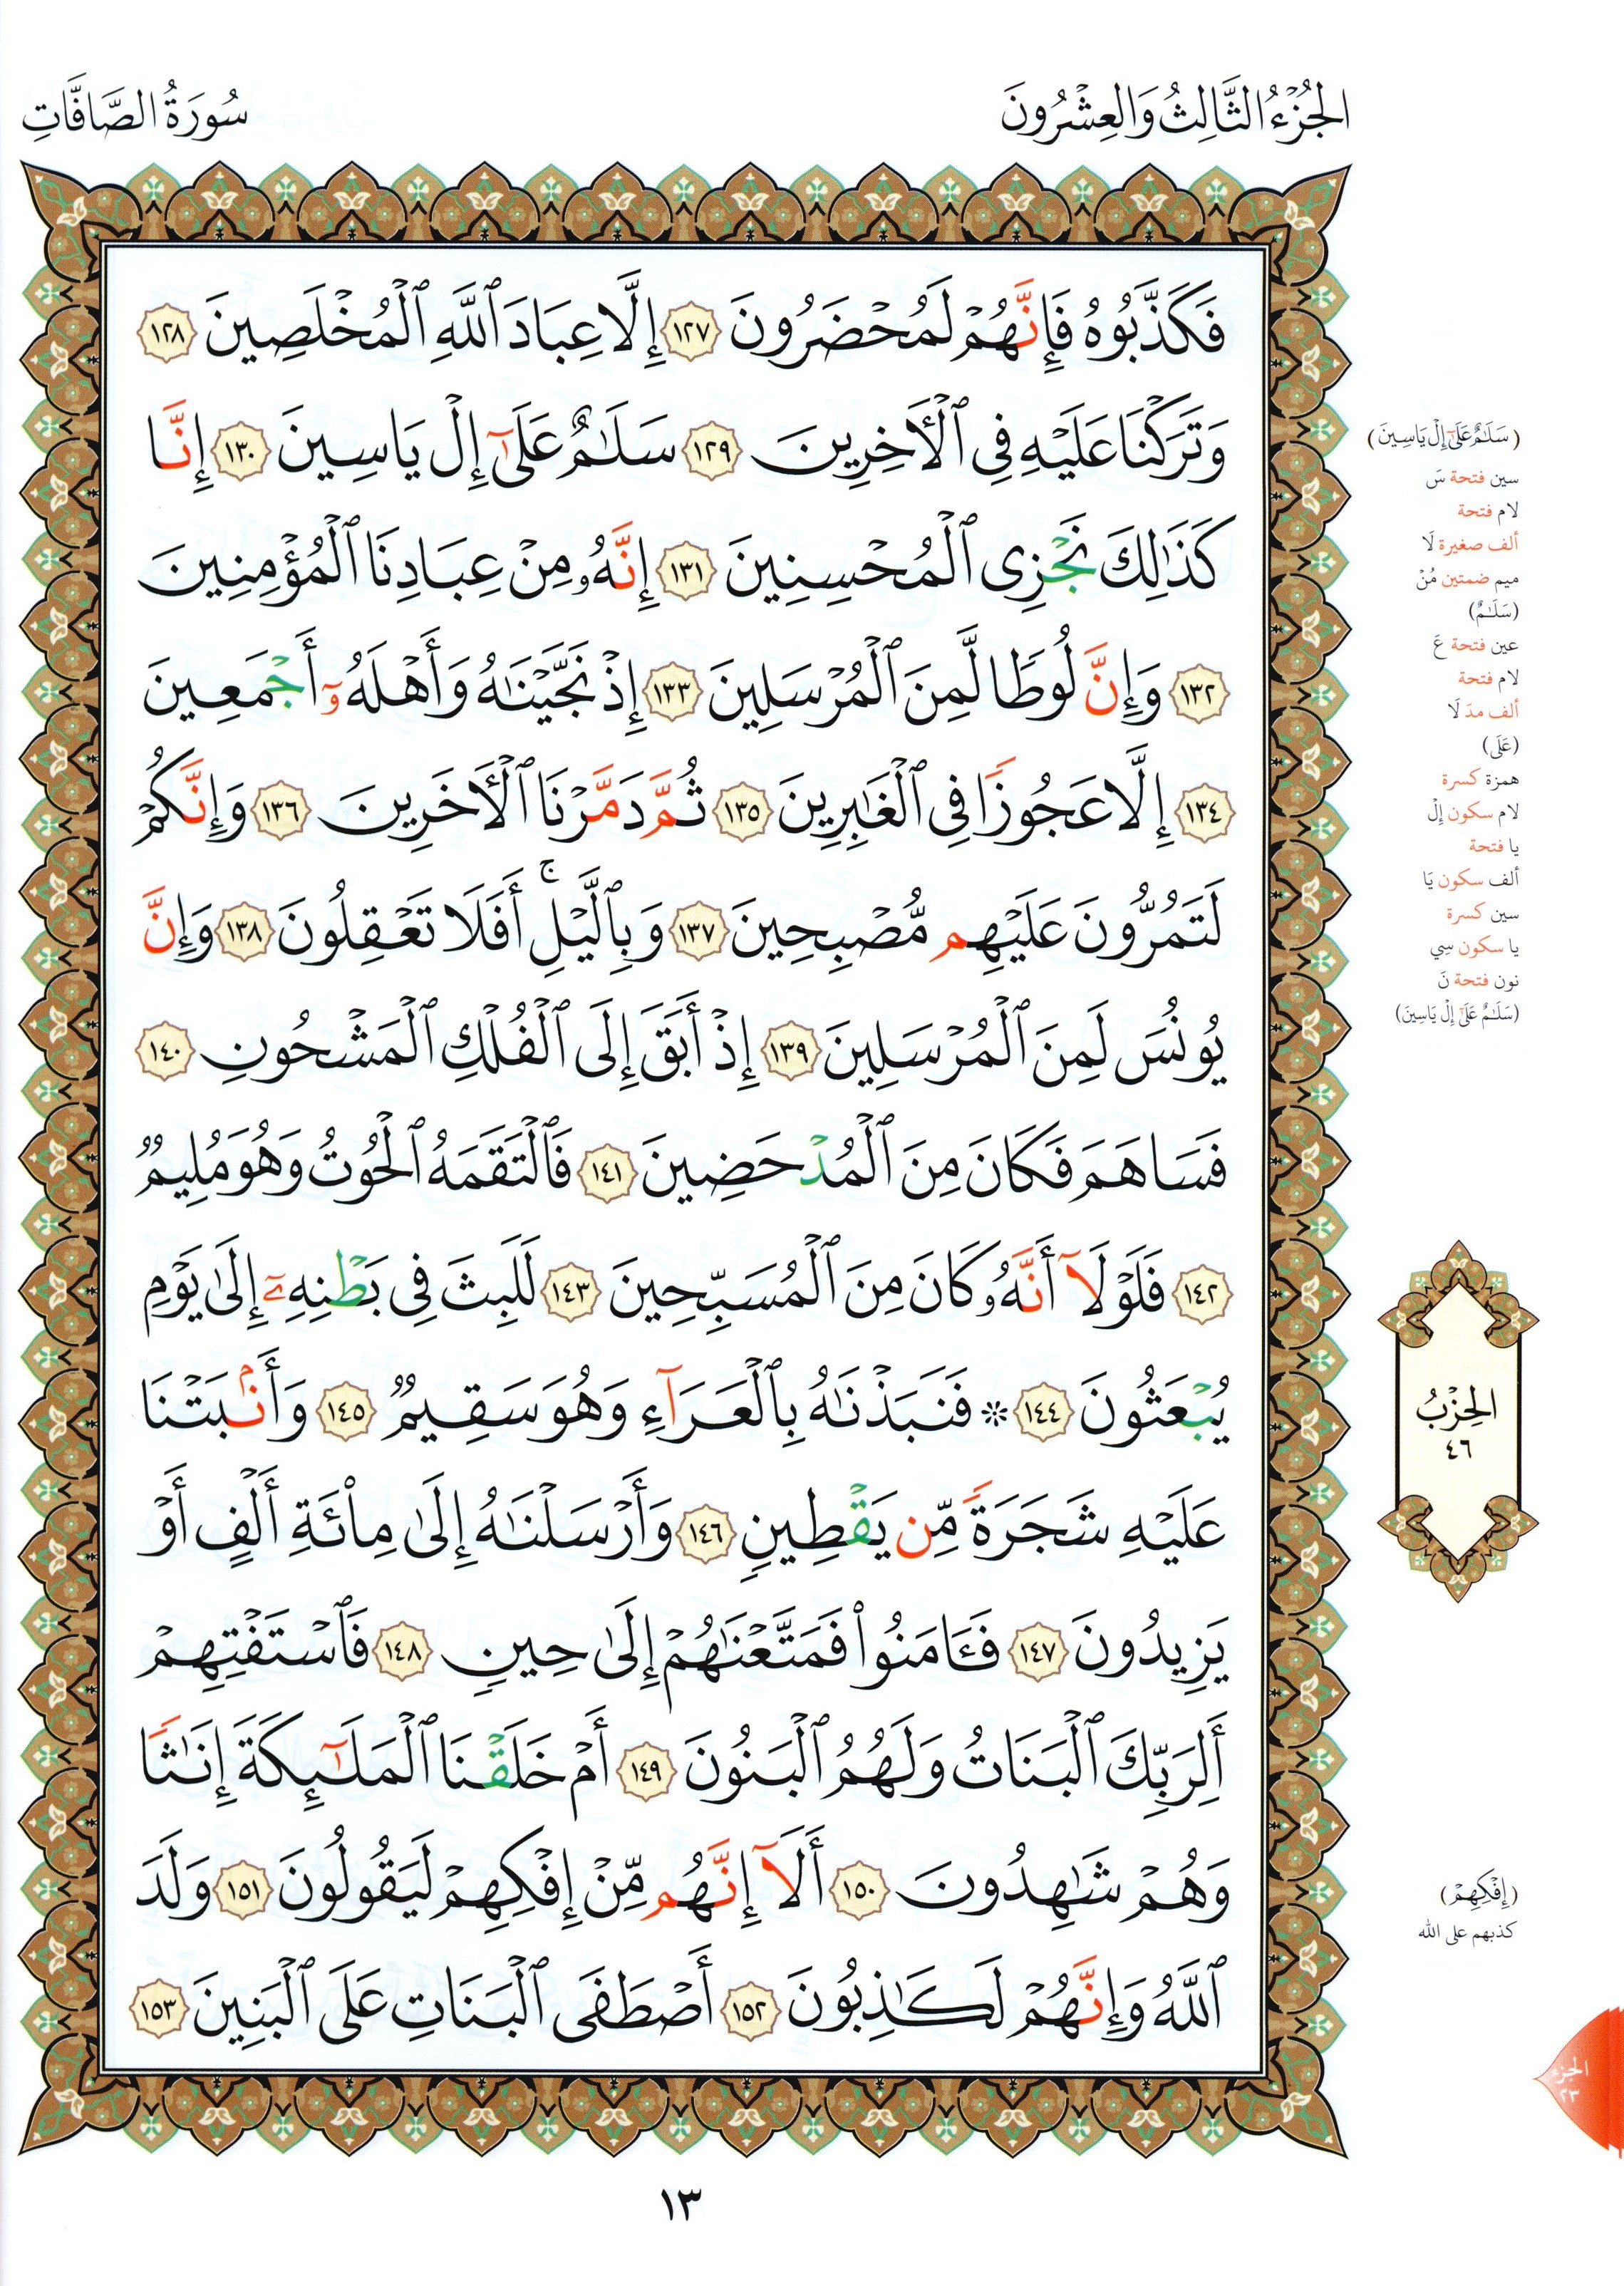 الجُزْءُ الثَّالِثُ وَالعِشْرُونَ
سُورَةُ الصَّافَّاتِ
فَكَذَّبُوهُ فَإِنَّهُمْ لَمُحْضَرُونَ ١٢٧ إِلَّا عِبَادَ ٱللَّهِ ٱلْمُخْلَصِينَ ١٢٨
وَتَرَكْنَا عَلَيْهِ فِى ٱلْأَخِرِينَ ١٢٩ سَلَـٰمٌ عَلَىٰٓ إِلْ يَاسِينَ ١٣٠ إِنَّا
كَذَٰلِكَ نَجْزِى ٱلْمُحْسِنِينَ ١٣١ إِنَّهُۥ مِنْ عِبَادِنَا ٱلْمُؤْمِنِينَ
١٣٢ وَإِنَّ لُوطًا لَّمِنَ ٱلْمُرْسَلِينَ ١٣٣ إِذْ نَجَّيْنَـٰهُ وَأَهْلَهُۥٓ أَجْمَعِينَ
١٣٤ إِلَّا عَجُوزًا فِى ٱلْغَـٰبِرِينَ ١٣٥ ثُمَّ دَمَّرْنَا ٱلْأَخَرِينَ ١٣٦ وَإِنَّكُمْ
لَتَمُرُّونَ عَلَيْهِم مُّصْبِحِينَ ١٣٧ وَبِٱلَّيْلِ ۚ أَفَلَا تَعْقِلُونَ ١٣٨ وَإِنَّ
يُونُسَ لَمِنَ ٱلْمُرْسَلِينَ ١٣٩ إِذْ أَبَقَ إِلَى ٱلْفُلْكِ ٱلْمَشْحُونِ ١٤٠
فَسَاهَمَ فَكَانَ مِنَ ٱلْمُدْحَضِينَ ١٤١ فَٱلْتَقَمَهُ ٱلْحُوتُ وَهُوَ مُلِيمٌ
١٤٢ فَلَوْلَآ أَنَّهُۥ كَانَ مِنَ ٱلْمُسَبِّحِينَ ١٤٣ لَلَبِثَ فِى بَطْنِهِۦٓ إِلَىٰ يَوْمِ
يُبْعَثُونَ ١٤٤ ۞ فَنَبَذْنَـٰهُ بِٱلْعَرَآءِ وَهُوَ سَقِيمٌ ١٤٥ وَأَنۢبَتْنَا
عَلَيْهِ شَجَرَةً مِّن يَقْطِينٍ ١٤٦ وَأَرْسَلْنَـٰهُ إِلَىٰ مِا۟ئَةِ أَلْفٍ أَوْ
يَزِيدُونَ ١٤٧ فَـَٔامَنُوا۟ فَمَتَّعْنَـٰهُمْ إِلَىٰ حِينٍ ١٤٨ فَٱسْتَفْتِهِمْ
أَلِرَبِّكَ ٱلْبَنَاتُ وَلَهُمُ ٱلْبَنُونَ ١٤٩ أَمْ خَلَقْنَا ٱلْمَلَـٰٓئِكَةَ إِنَـٰثًا
وَهُمْ شَـٰهِدُونَ ١٥٠ أَلَآ إِنَّهُم مِّنْ إِفْكِهِمْ لَيَقُولُونَ ١٥١ وَلَدَ
ٱللَّهُ وَإِنَّهُمْ لَكَـٰذِبُونَ ١٥٢ أَصْطَفَى ٱلْبَنَاتِ عَلَى ٱلْبَنِينَ ١٥٣
(سَلَـٰمٌ عَلَىٰٓ إِلْ يَاسِينَ)
سين فتحة سَ
لام فتحة
ألف صغيرة لَا
ميم ضمتين مُنْ
(سَلَـٰمٌ)
عين فتحة عَ
لام فتحة
ألف مدّ لَا
(عَلَى)
همزة كسرة
لام سكون إِلْ
يا فتحة
ألف سكون يَا
سين كسرة
يا سكون سِي
نون فتحة نَ
(سَلَـٰمٌ عَلَىٰٓ إِلْ يَاسِينَ)
الحِزْبُ
٤٦
(إِفْكِهِمْ)
كذبهم على الله
الجزء
٢٣
١٣